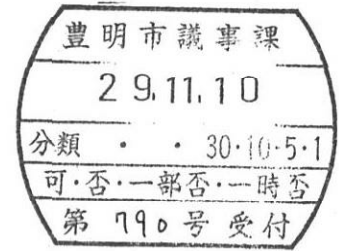 豊明市議事課
29.11.10
分類 ・ ・ 30・10・5・1
可・否・一部否・一時否
第 790 号 受付